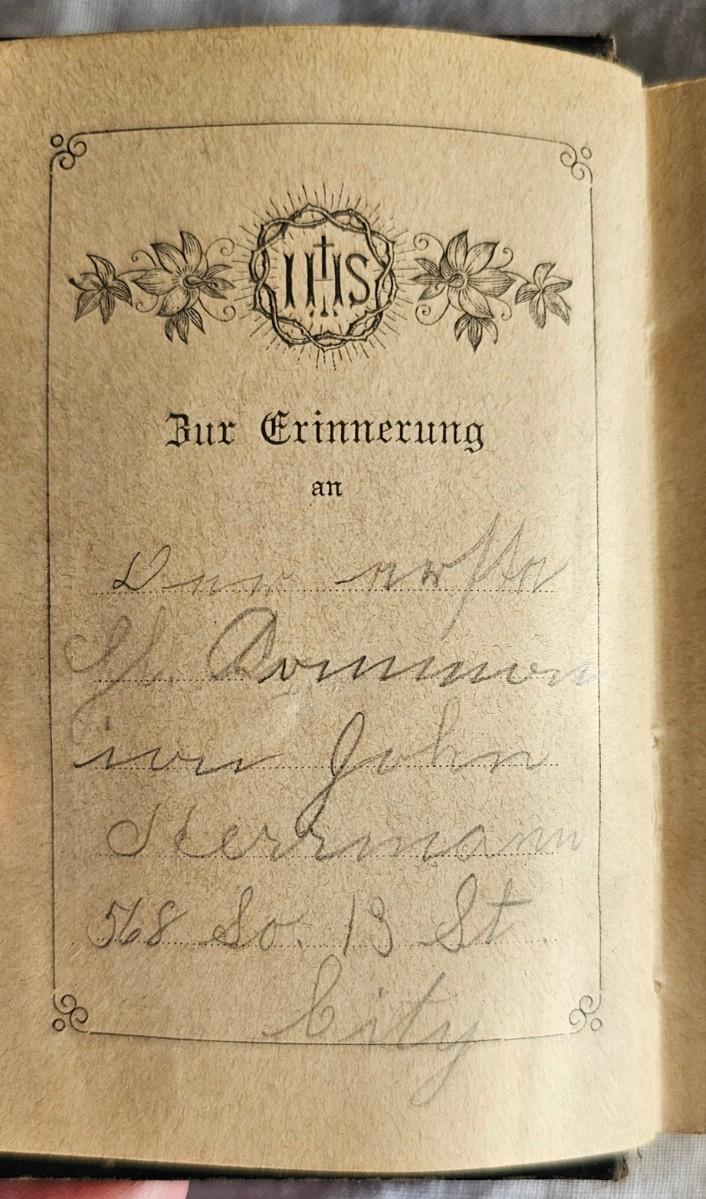 IHS
Zur Erinnerung
an
Der erste
Hl. Kommion
von John
Herrmann
568 So. 13 St
City